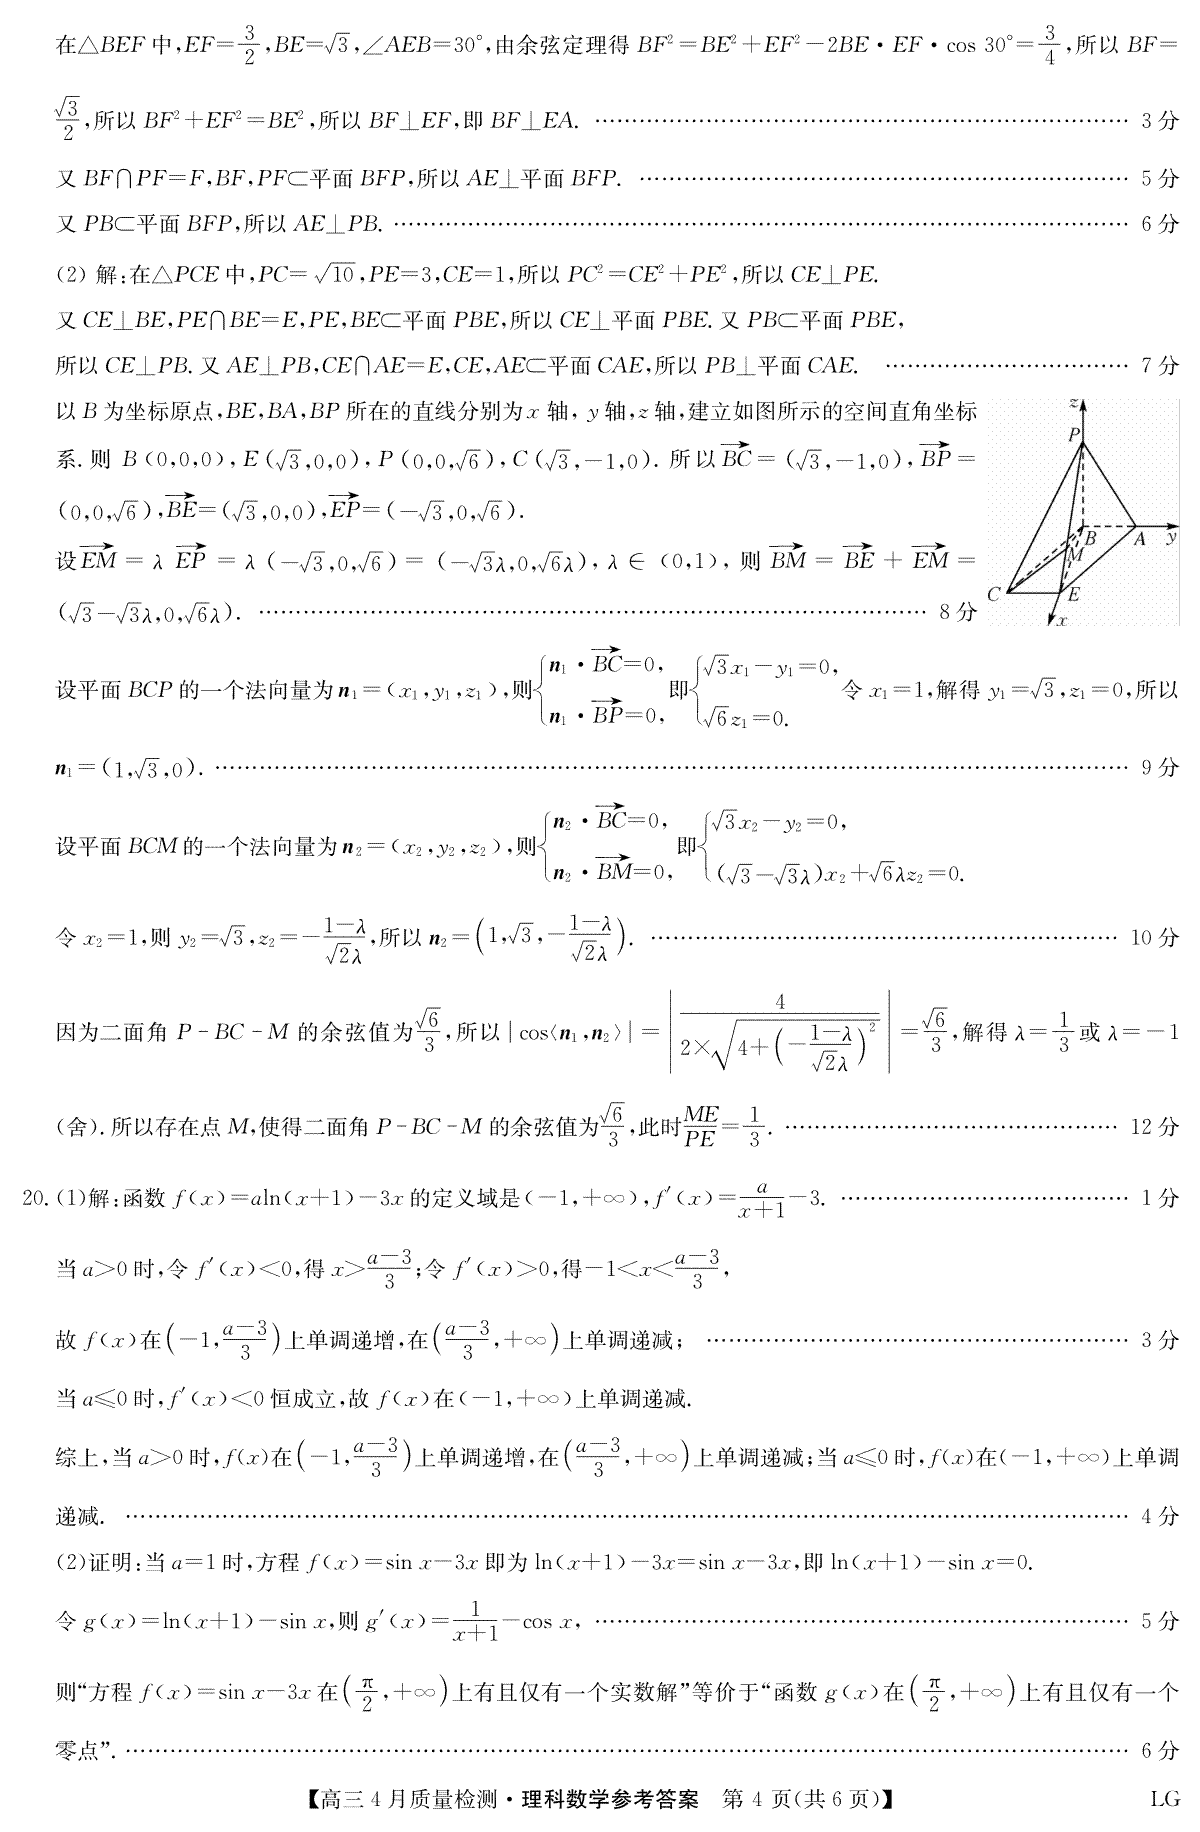 在△BEF 中,EF=3/2,BE=√3,∠AEB=30°,由余弦定理得 BF²=BE²+EF²-2BE·EF·cos 30°=3/4,所以 BF=
√3/2,所以 BF²+EF²=BE²,所以 BF⊥EF,即 BF⊥EA. …… 3 分
又 BF∩PF=F,BF,PF⊂平面 BFP,所以 AE⊥平面 BFP. …… 5 分
又 PB⊂平面 BFP,所以 AE⊥PB. …… 6 分
(2) 解:在△PCE 中,PC=√10,PE=3,CE=1,所以 PC²=CE²+PE²,所以 CE⊥PE.
又 CE⊥BE,PE∩BE=E,PE,BE⊂平面 PBE,所以 CE⊥平面 PBE. 又 PB⊂平面 PBE,
所以 CE⊥PB. 又 AE⊥PB,CE∩AE=E,CE,AE⊂平面 CAE,所以 PB⊥平面 CAE. …… 7 分
以 B 为坐标原点,BE,BA,BP 所在的直线分别为 x 轴, y 轴,z 轴,建立如图所示的空间直角坐标
系. 则 B(0,0,0), E(√3,0,0), P(0,0,√6), C(√3,-1,0). 所以 →BC=(√3,-1,0), →BP=
(0,0,√6),→BE=(√3,0,0),→EP=(-√3,0,√6).
设→EM=λ →EP=λ(-√3,0,√6)=(-√3λ,0,√6λ), λ∈(0,1), 则 →BM=→BE+→EM=
(√3-√3λ,0,√6λ). …… 8 分
z
P
B
A
y
M
C
E
x
设平面 BCP 的一个法向量为 n₁=(x₁,y₁,z₁),则{n₁·→BC=0, n₁·→BP=0, 即{√3x₁-y₁=0, √6z₁=0. 令 x₁=1,解得 y₁=√3,z₁=0,所以
n₁=(1,√3,0). …… 9 分
设平面 BCM 的一个法向量为 n₂=(x₂,y₂,z₂),则{n₂·→BC=0, n₂·→BM=0, 即{√3x₂-y₂=0, (√3-√3λ)x₂+√6λz₂=0.
令 x₂=1,则 y₂=√3,z₂=-(1-λ)/(√2λ),所以 n₂=(1,√3,-(1-λ)/(√2λ)). …… 10 分
因为二面角 P-BC-M 的余弦值为√6/3,所以|cos⟨n₁,n₂⟩|=|4/(2×√(4+(-(1-λ)/(√2λ))²))|=√6/3,解得 λ=1/3或 λ=-1
(舍). 所以存在点 M,使得二面角 P-BC-M 的余弦值为√6/3,此时ME/PE=1/3. …… 12 分
20. (1)解:函数 f(x)=aln(x+1)-3x 的定义域是(-1,+∞),f′(x)=a/(x+1)-3. …… 1 分
当 a>0 时,令 f′(x)<0,得 x>(a-3)/3;令 f′(x)>0,得-1<x<(a-3)/3,
故 f(x)在(-1,(a-3)/3)上单调递增,在((a-3)/3,+∞)上单调递减; …… 3 分
当 a≤0 时,f′(x)<0 恒成立,故 f(x)在(-1,+∞)上单调递减.
综上,当 a>0 时,f(x)在(-1,(a-3)/3)上单调递增,在((a-3)/3,+∞)上单调递减;当 a≤0 时,f(x)在(-1,+∞)上单调
递减. …… 4 分
(2)证明:当 a=1 时,方程 f(x)=sin x-3x 即为 ln(x+1)-3x=sin x-3x,即 ln(x+1)-sin x=0.
令 g(x)=ln(x+1)-sin x,则 g′(x)=1/(x+1)-cos x, …… 5 分
则“方程 f(x)=sin x-3x 在(π/2,+∞)上有且仅有一个实数解”等价于“函数 g(x)在(π/2,+∞)上有且仅有一个
零点”. …… 6 分
【高三 4 月质量检测·理科数学参考答案 第 4 页(共 6 页)】 LG